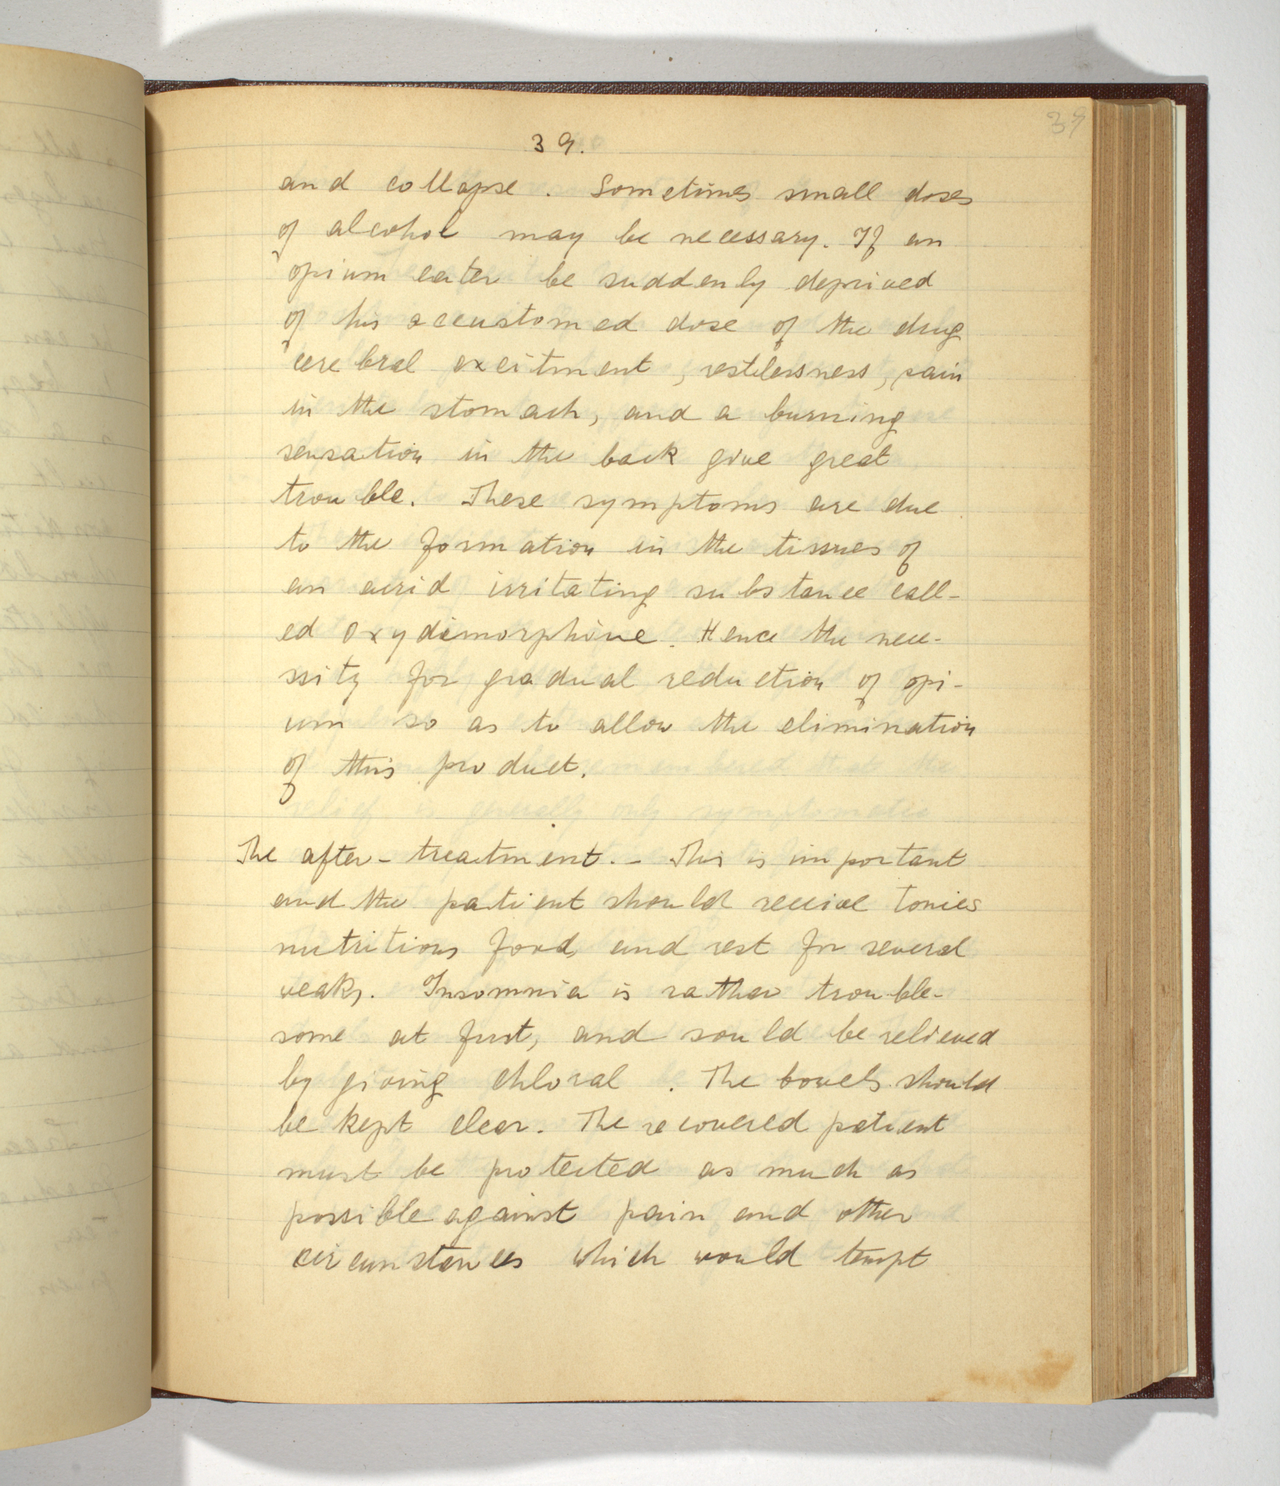 39
39.
and collapse. Sometimes small doses
of alcohol may be necessary. If an
opium eater be suddenly deprived
of his accustomed dose of the drug
cerebral excitment, restlessness, pain
in the stomach, and a burning
sensation in the back give great
trouble. These symptoms are due
to the formation in the tissues of
an acrid irritating substance call-
ed oxydimorphine. Hence the nece-
ssity for gradual reduction of opi-
um so as to allow the elimination
of this product.
The after-treatment.- This is important
and the patient should receive tonics
nutritious food and rest for several
weaks. Insomnia is rather trouble-
some at first, and sould be relieved
by giving chloral. The bowels should
be kept clear. The recovered patient
must be protected as much as
possible against pain and other
circumstances which would tempt